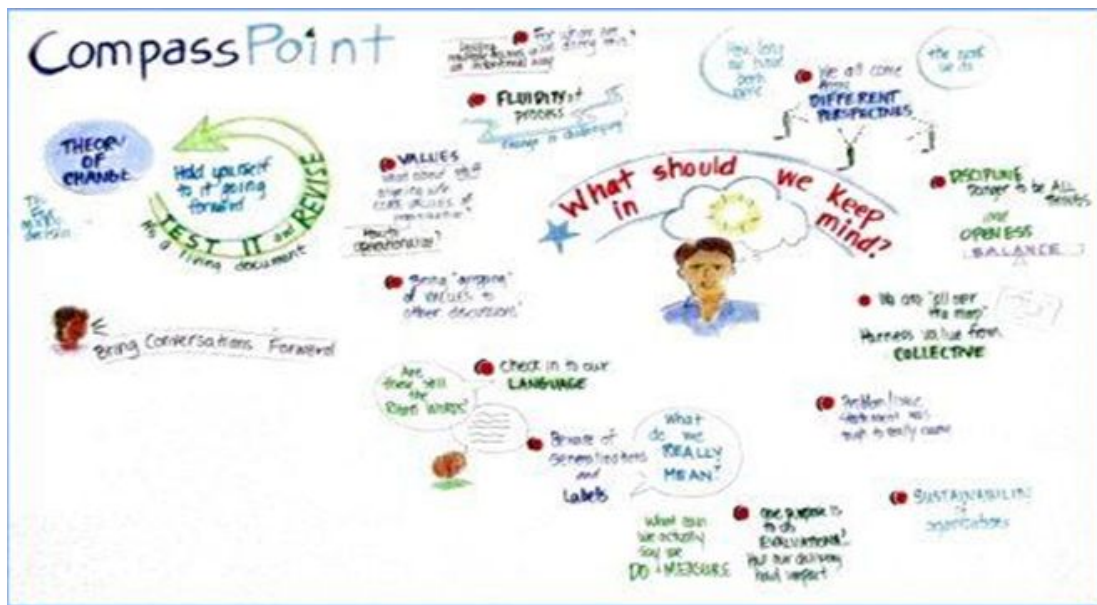 CompassPoint
THEORY
OF
CHANGE
Hold yourself
to it going
forward
TEST IT and REVISE
As a living document
Bring Conversations Forward
For whom are
we doing this?
FLUIDITY of
process
change is challenging
VALUES
what about
CORE VALUES of
How to
operationalize?
Being
of VALUES to
other discussions
Check in to our
LANGUAGE
Are
these still
the
Right Words?
Beware of
Generalizations
and
Labels
What
do we
REALLY
MEAN?
What can
we actually
say we
DO + MEASURE
one purpose is
to do
EVALUATION?
Has our delivery
had impact
What should we keep
in mind?
How long
we have
been
here
We all come
from
DIFFERENT
PERSPECTIVES
the work
we do
DISCIPLINE
Danger to be ALL
THINGS
and
OPENESS
BALANCE
We are "all over
the map"
Harness value from
COLLECTIVE
Problem/issue
statement was
SUSTAINABILITY
of
organizations